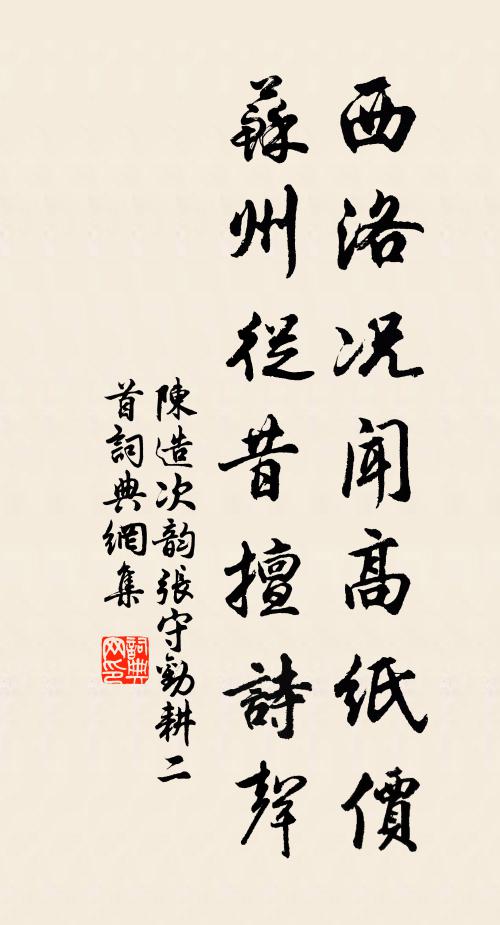 西洛况闻高纸價
蘇州從昔擅詩聲
陳造次韵張守勸耕二
首詞典網集
詞典网印